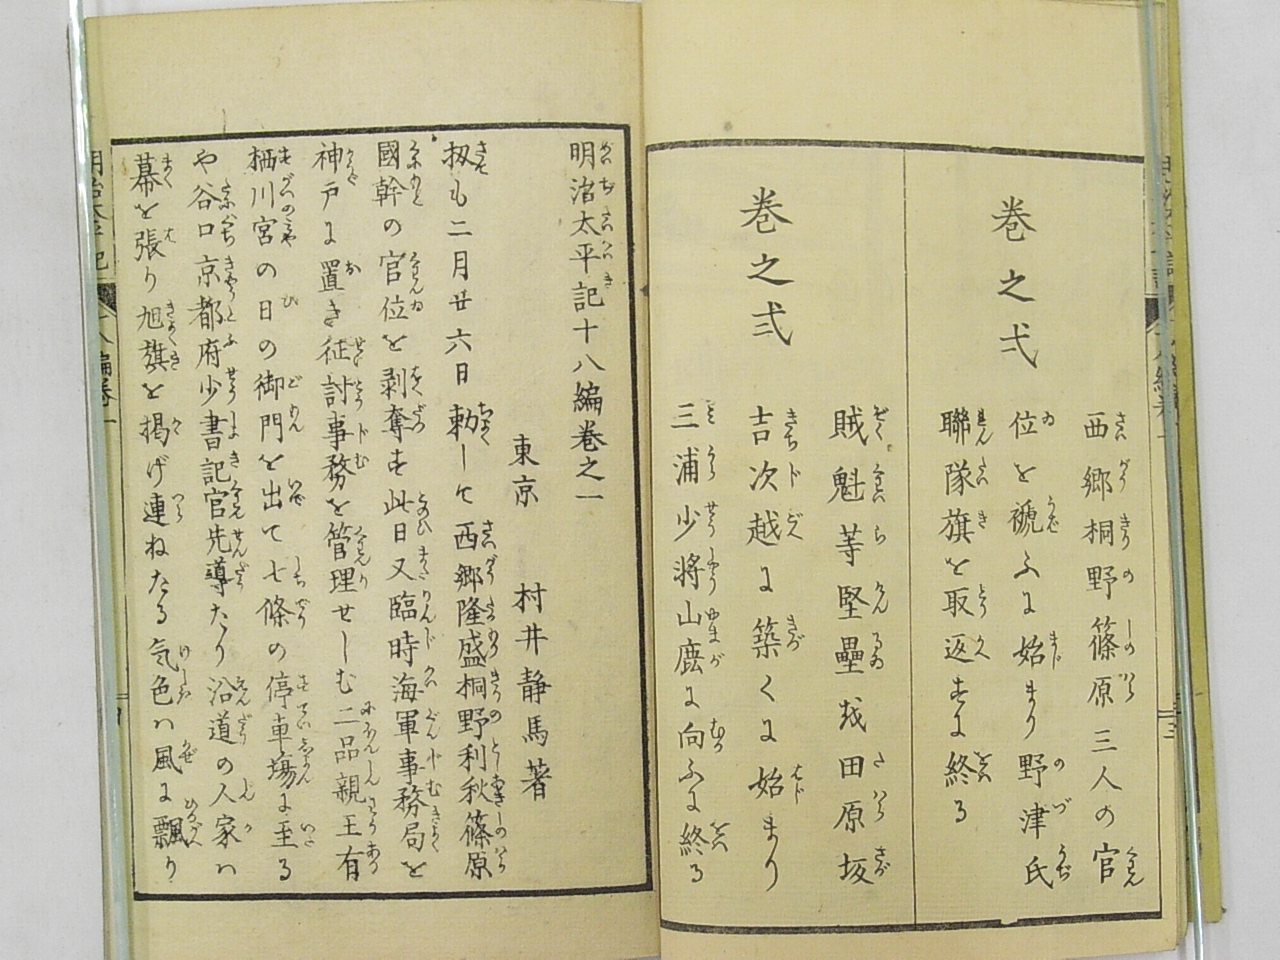 巻之弌
西郷桐野篠原三人の官
位を褫ふに始まり野津氏
聯隊旗を取返すに終る
巻之弍
賊魁等堅壘を田原坂
吉次越に築くに始まり
三浦少将山鹿に向ふに終る
明治太平記十八編巻之一
東京 村井静馬著
扨も二月廿六日勅して西郷隆盛桐野利秋篠原
國幹の官位を剥奪す此日又臨時海軍事務局を
神戸に置き征討事務を管理せしむ二品親王有
栖川宮の日の御門を出て七條の停車場に至る
や谷口京都府少書記官先導たり沿道の人家ハ
幕を張り旭旗を掲げ連ねたる気色ハ風に飄り
明治太平記 十八編巻一